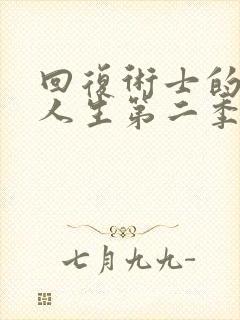 回復術士的
人生第二季
七月九九-